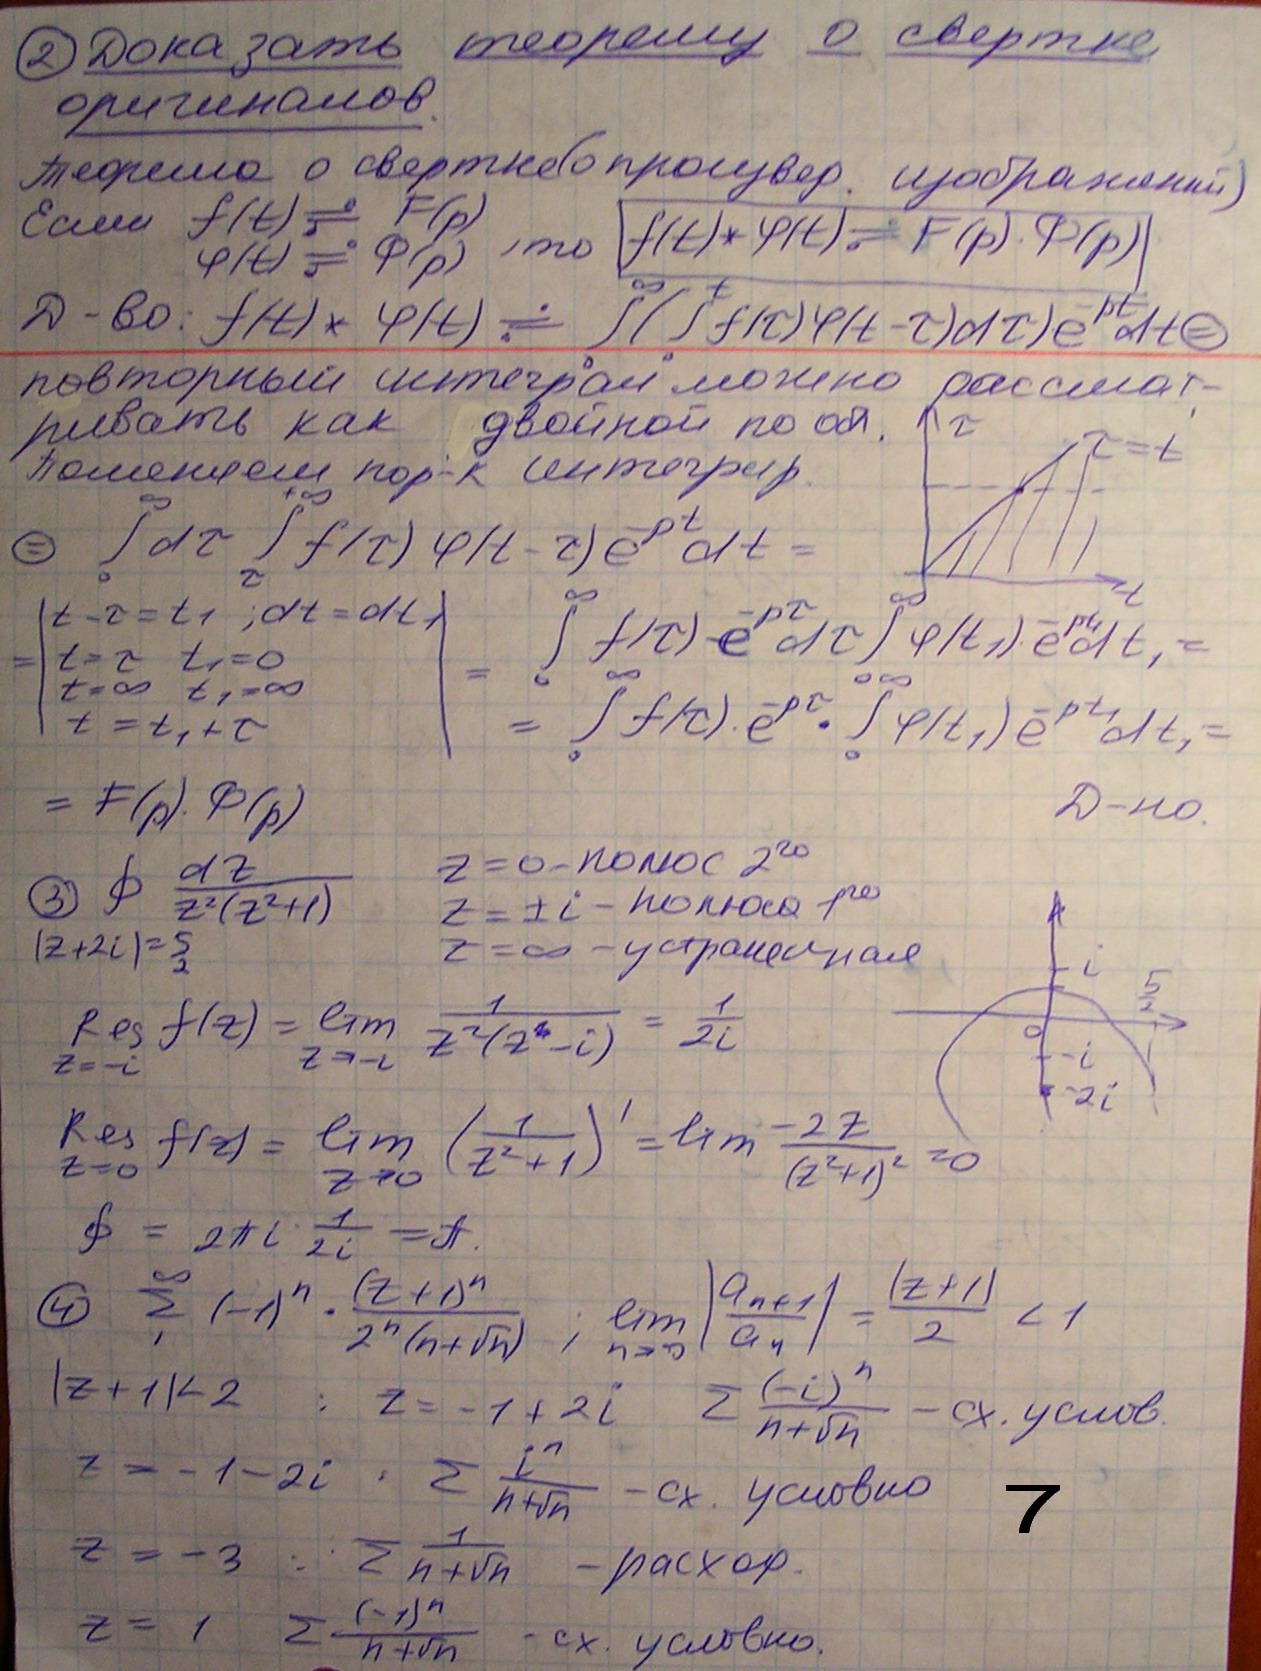 ② Доказать теорему о свертке
оригиналов.
Теорема о свертке (о произвед. изображений)
Если f(t) ≓ F(p)
φ(t) ≓ Φ(p), то f(t)*φ(t) ≓ F(p)·Φ(p)
Д-во: f(t)*φ(t) ≓ ∫₀^∞ (∫₀^t f(τ)φ(t-τ)dτ) e^{-pt} dt ⊜
повторный интеграл можно рассмат-
ривать как двойной по обл.
τ
τ=t
Поменяем пор-к интегрир.
⊜ ∫₀^∞ dτ ∫_τ^{+∞} f(τ) φ(t-τ) e^{-pt} dt =
t
= | t-τ=t₁ ; dt=dt₁
t=τ t₁=0
t=∞ t₁=∞
t=t₁+τ |
= ∫₀^∞ f(τ)·e^{-pτ} dτ ∫₀^∞ φ(t₁)·e^{-pt₁} dt₁ =
= ∫₀^∞ f(τ)·e^{-pτ} · ∫₀^∞ φ(t₁) e^{-pt₁} dt₁ =
= F(p)·Φ(p)
Д-но.
③ ∮ dz / z²(z²+1)
|z+2i|=5/2
z=0 - полюс 2го
z=±i - полюса 1го
z=∞ - устранимая
i
5/2
0
-i
-2i
Res f(z) = lim 1/(z²(z-i)) = 1/2i
z=-i z→-i
Res f(z) = lim (1/(z²+1))' = lim -2z/(z²+1)² = 0
z=0 z→0
∮ = 2πi · 1/2i = π.
④ ∑₁^∞ (-1)ⁿ · (z+1)ⁿ / 2ⁿ(n+√n) ; lim n→∞ |aₙ₊₁/aₙ| = |z+1|/2 < 1
|z+1|<2 : z=-1+2i ∑ (-i)ⁿ/(n+√n) - сх. услов.
z=-1-2i : ∑ iⁿ/(n+√n) - сх. условно
7
z=-3 : ∑ 1/(n+√n) - расход.
z=1 ∑ (-1)ⁿ/(n+√n) - сх. условно.